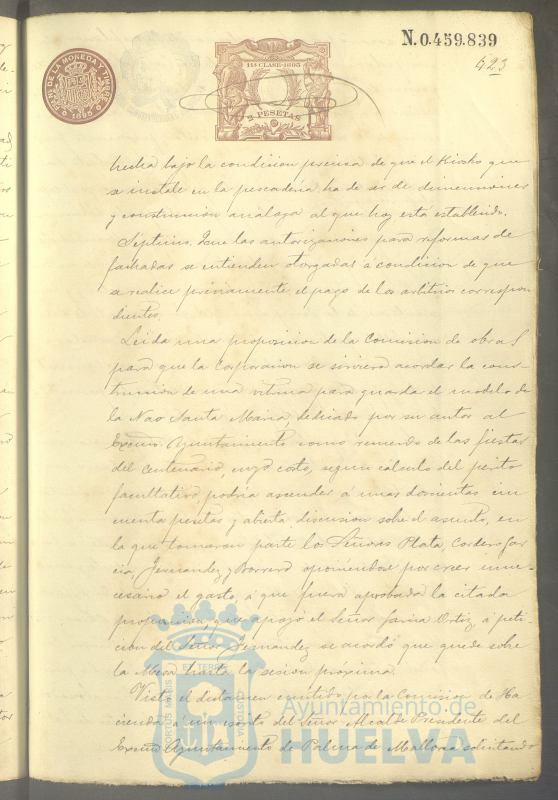 N.0.459.839
423
11ª CLASE-1895
2 PESETAS
1895
hecha bajo la condicion precisa de que el Kiosko que
se instale en la pescaderia ha de ser de dimensiones
y construccion análaga al que hoy está establecido.
Séptimo. Que las autorizaciones para reformas de
fachadas se entienden otorgadas á condicion de que
se realice préviamente el pago de los arbitrios correspon
dientes.
Leida una proposicion de la Comision de obras
para que la Corporacion se sirviera acordar la cons-
truccion de una vitrina para guardar el modelo de
la Nao Santa Maria, dedicado por su autor al
Excmo. Ayuntamiento como recuerdo de las fiestas
del Centenario, cuyo costo, segun cálculo del perito
facultativo, podria ascender á unas doscientas cin
cuenta pesetas y abierta discusion sobre el asunto, en
la que tomaron parte los Señores Plata, Cordero, Gar
cia, Fernandez y Borrero oponiendose por creer inne-
cesario el gasto, á que fuera aprobada la citada
proposicion, que apoyó el Señor Garcia Ortiz, á peti-
cion del Señor Fernandez se acordó que quede sobre
la Mesa hasta la sesion próxima.
Visto el dictamen emitido por la Comision de Ha
cienda á un escrito del Señor Alcalde Presidente del
Excmo Ayuntamiento de Palma de Mallorca solicitando
Ayuntamiento de
HUELVA